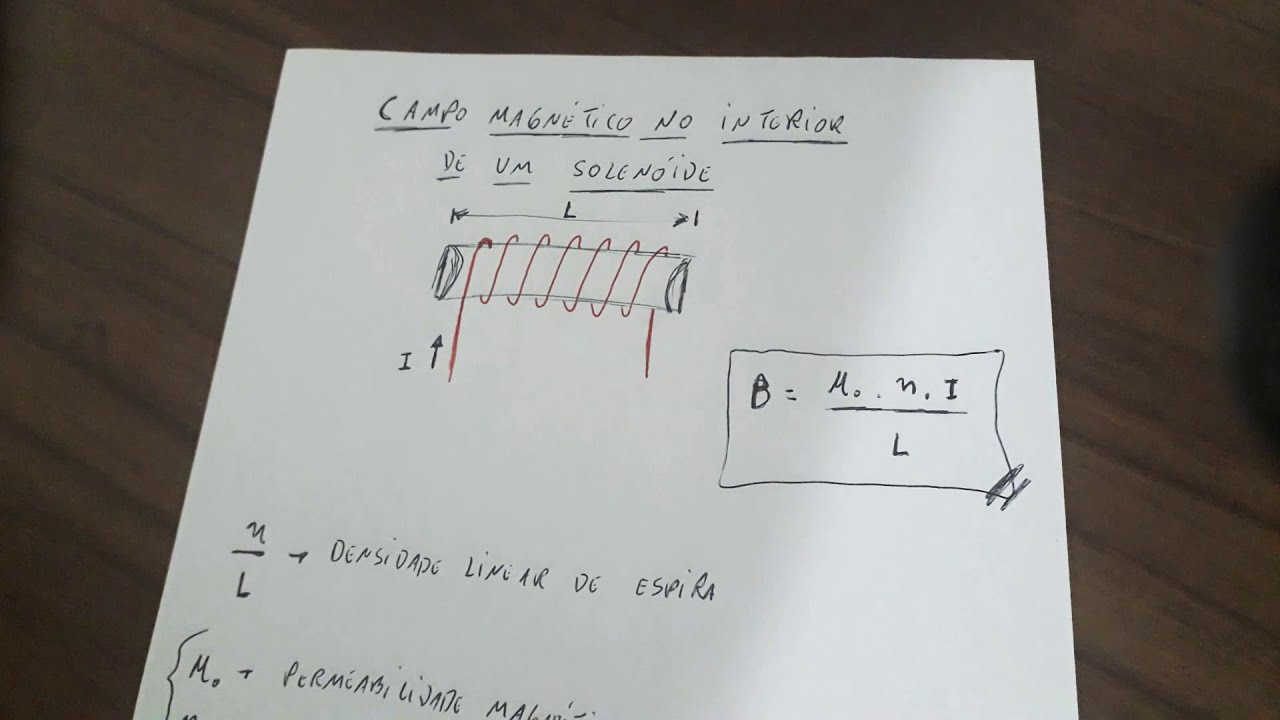 CAMPO MAGNÉTICO NO INTERIOR
DE UM SOLENÓIDE
L
I
B = μ₀ . n . I
L
n
L → DENSIDADE LINEAR DE ESPIRA
μ₀ → PERMEABILIDADE